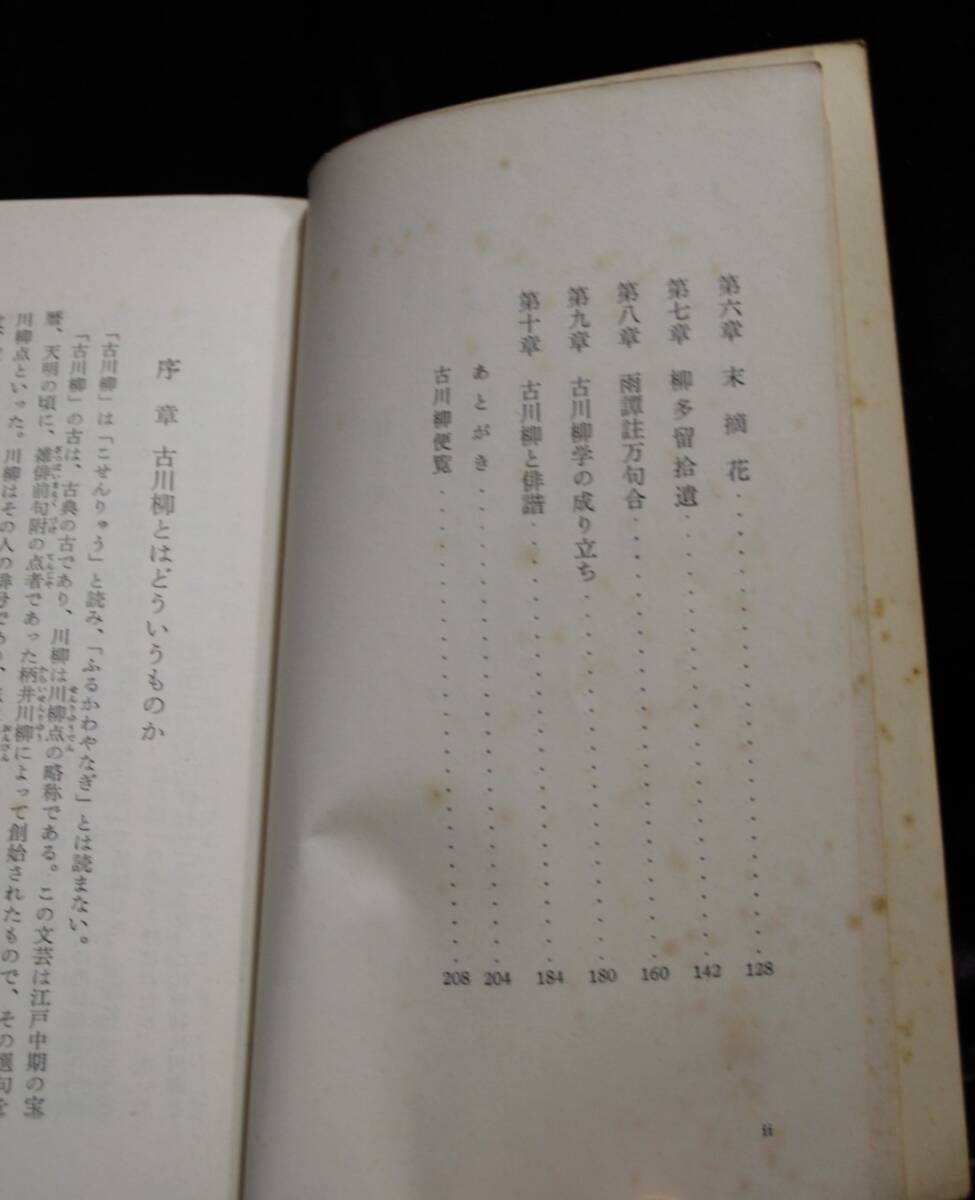 第六章 末摘花 128
第七章 柳多留拾遺 142
第八章 雨譚註万句合 160
第九章 古川柳学の成り立ち 180
第十章 古川柳と俳諧 184
あとがき 204
古川柳便覧 208
ii
序章 古川柳とはどういうものか
「古川柳」は「こせんりゅう」と読み、「ふるかわやなぎ」とは読まない。
「古川柳」の古は、古典の古であり、川柳は川柳点の略称である。この文芸は江戸中期の宝
暦、天明の頃に、雑俳前句附の点者であった柄井川柳によって創始されたもので、その選句を
川柳点といった。川柳はその人の俳号であり、